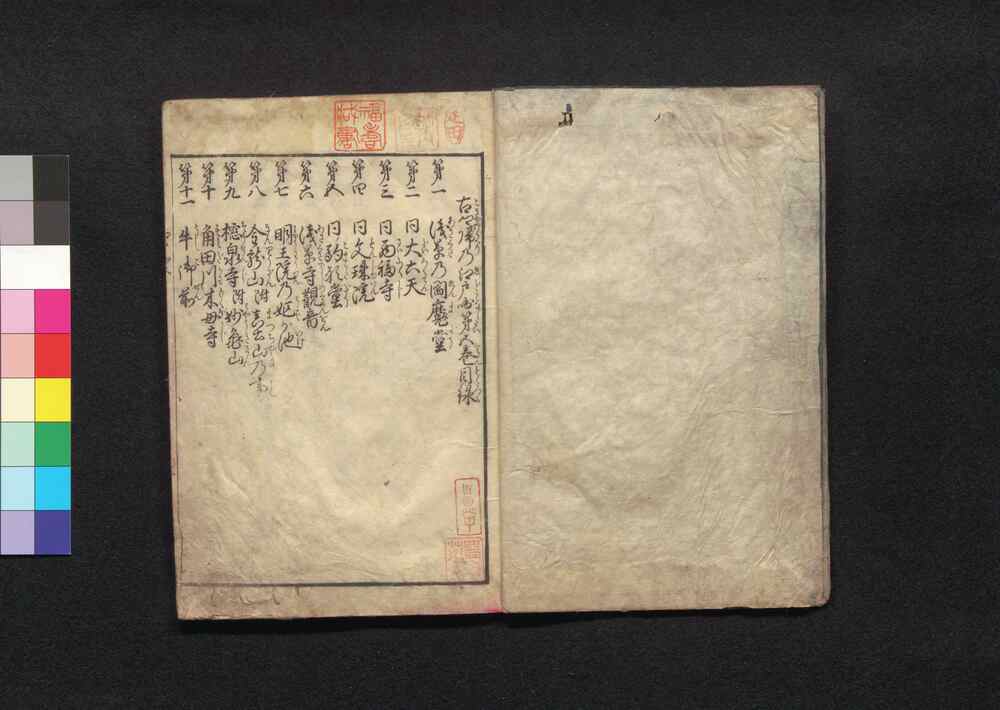 古郷帰乃江戸咄第五巻目録
第一 浅草乃閻魔堂
第二 同大六天
第三 同西福寺
第四 同文珠院
第五 同駒形堂
第六 浅草寺觀音
第七 明王院乃姥ヶ池
第八 金龍山附真土山乃事
第九 總泉寺附妙亀山
第十 角田川木母寺
第十一 牛御前